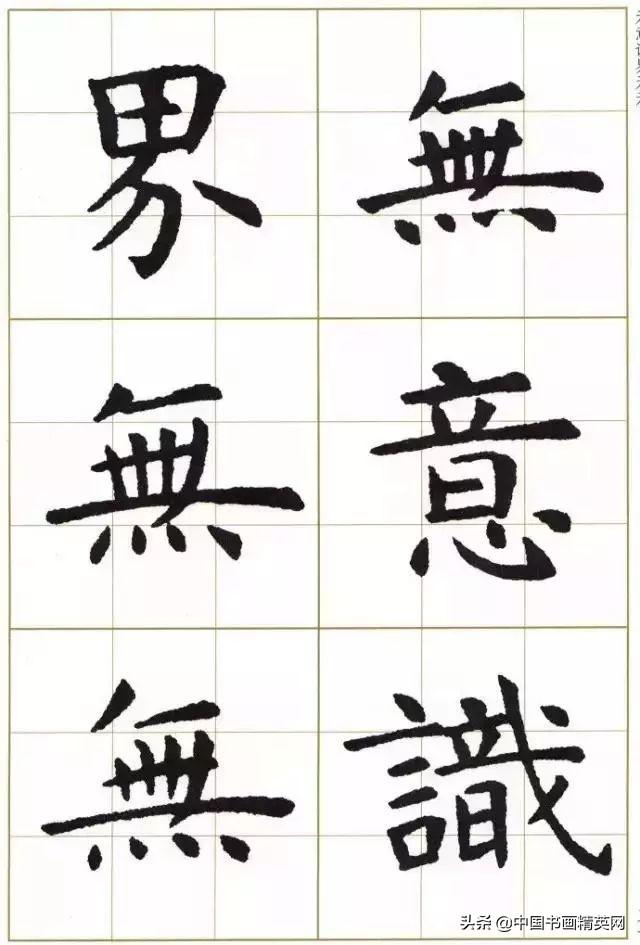 無意識
界無無
頭条 @中国书画精英网